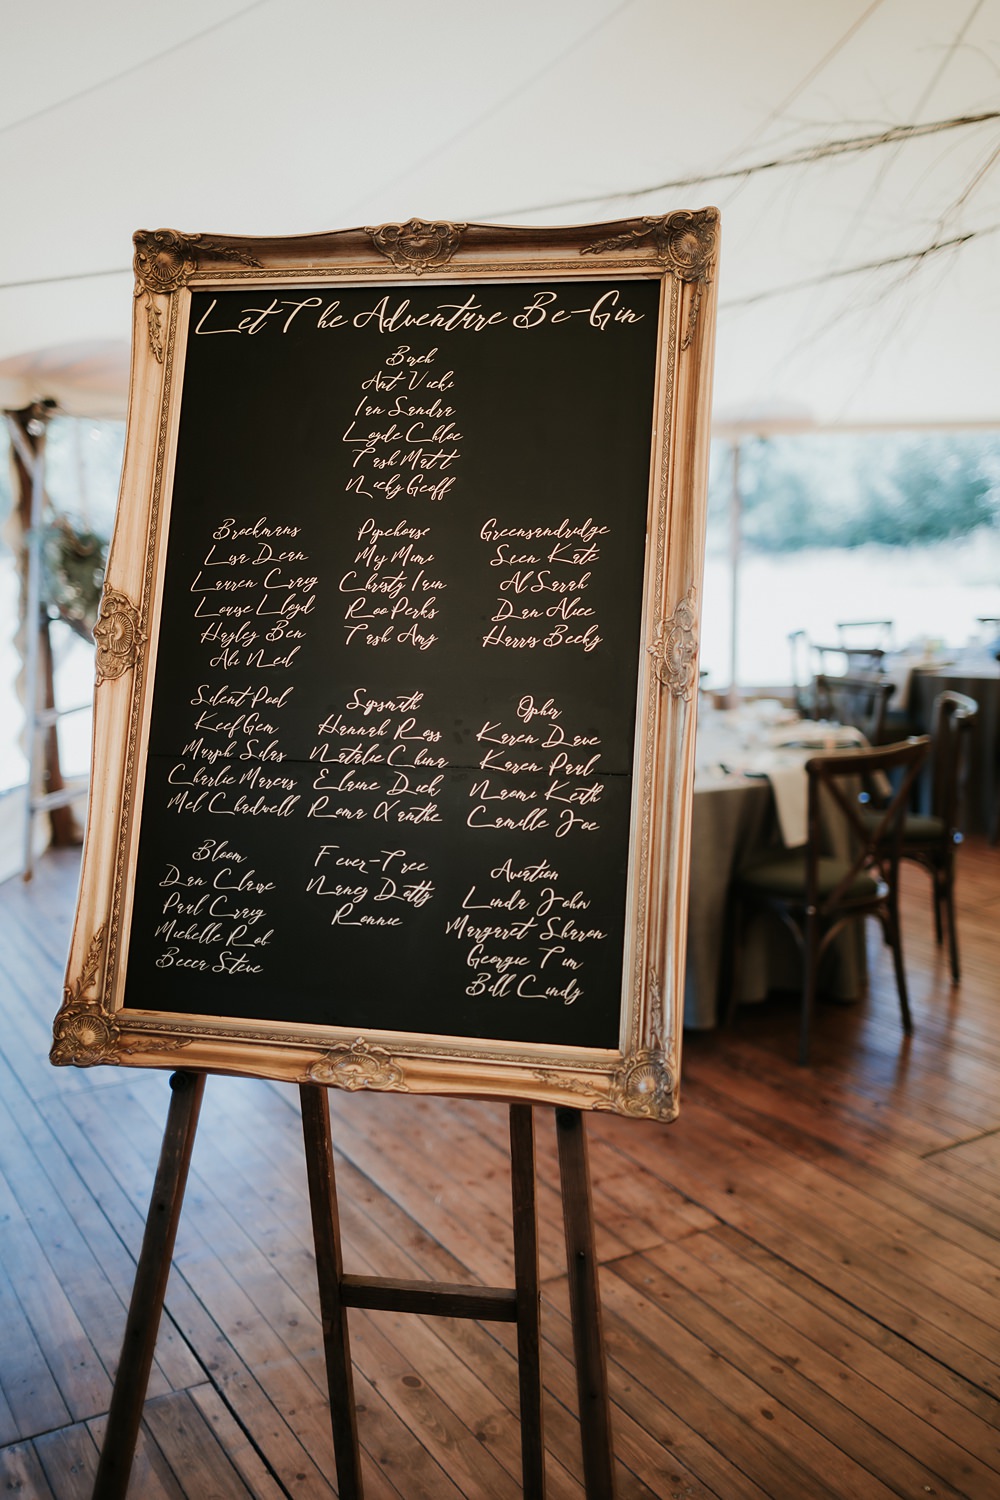 Let The Adventure Be-Gin
Birch
Ant Vicki
Ian Sandra
Loyde Chloe
Tash Matt
Nicky Geoff
Brockmans
Lisa Dean
Lauren Craig
Louise Lloyd
Hayley Ben
Abi Neil
Pipehouse
My Mimi
Christy Iain
Roo Perks
Tash Amy
Greensandridge
Sien Kate
Al Sarah
Dan Alice
Harry Becky
Silent Pool
Keef Gem
Murph Silas
Charlie Marcus
Mel Chadwell
Sipsmith
Hannah Ross
Natalie China
Elaine Dick
Roma Xanthe
Ophir
Karen Dave
Karen Paul
Naomi Keith
Camille Joe
Bloom
Dan Claire
Paul Craig
Michelle Rob
Becca Steve
Fever-Tree
Nancy Dotty
Ronnie
Aviation
Linda John
Margaret Sharon
Georgie Tim
Bill Cindy